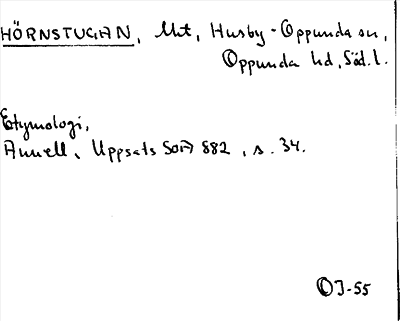 HÖRNSTUGAN, Mt, Husby-Oppunda sn,
Oppunda hd, Söd. l.
Etymologi,
Annell, Uppsats SOA 882, s. 34.
OJ-55